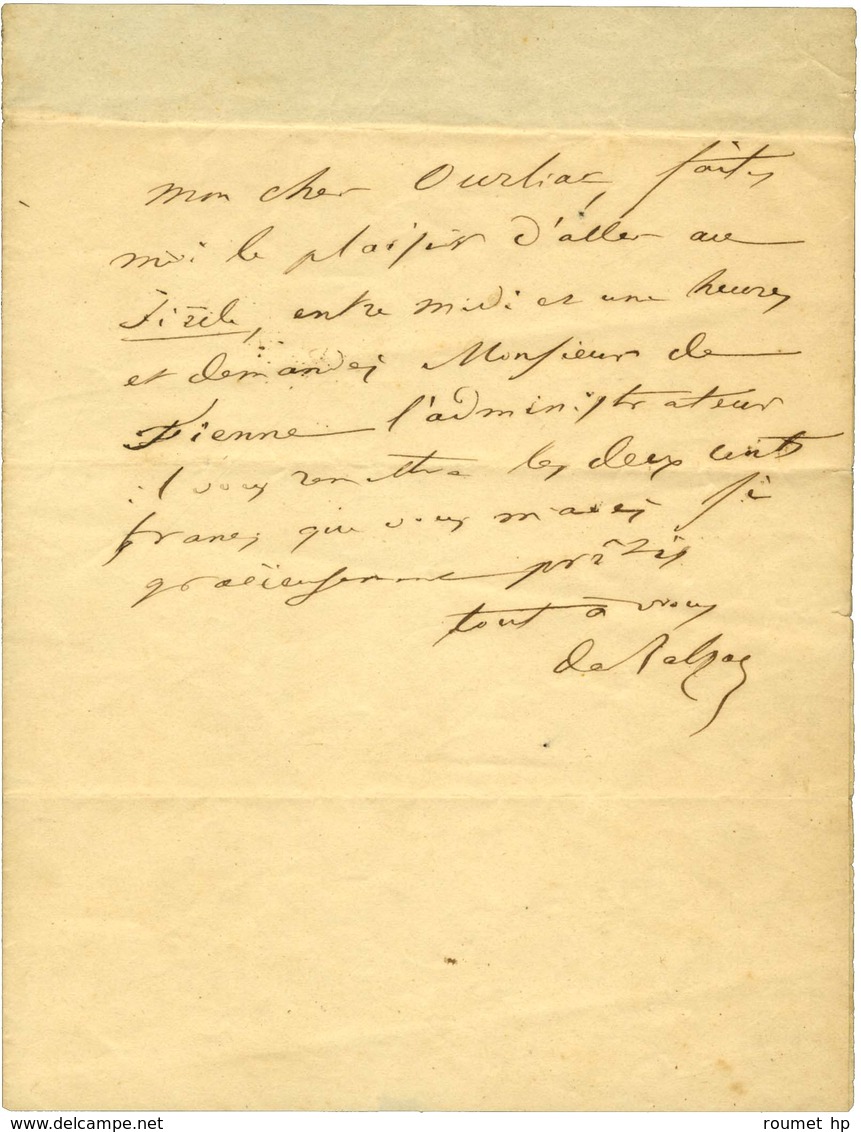 mon cher Ourliac, faites
moi le plaisir d'aller au
Siècle, entre midi et une heure,
et demandez Monsieur de
Fienne l'administrateur
il vous remettra les deux cents
francs que vous m'avez si
gracieusement prêtés
tout à vous
de Balzac
roumet hp